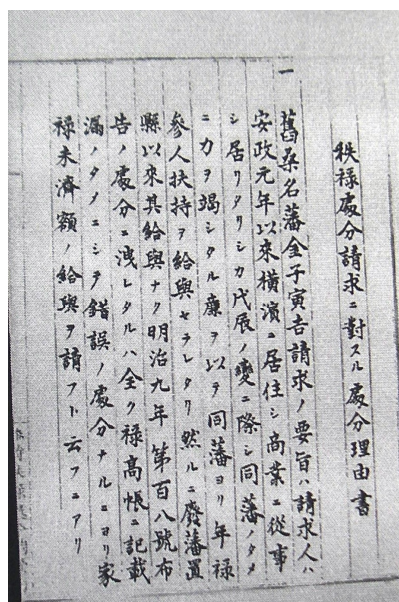 秩禄處分請求ニ對スル處分理由書
一
舊桑名藩金子寅吉請求ノ要旨ハ請求人ハ
安政元年以來横濱ニ居住シ商業ニ從事
シ居リタリシカ戊辰ノ變ニ際シ同藩ノタメ
ニ力ヲ竭シタル廉ヲ以テ同藩ヨリ年禄
參人扶持ヲ給與セラレタリ然ルニ廢藩置
縣以來其給與ナク明治九年第百八號布
告ノ處分ニ洩レタルハ全ク禄高帳ニ記載
漏ノタメニシテ錯誤ノ處分ナルニヨリ家
禄未濟額ノ給與ヲ請フト云フニアリ